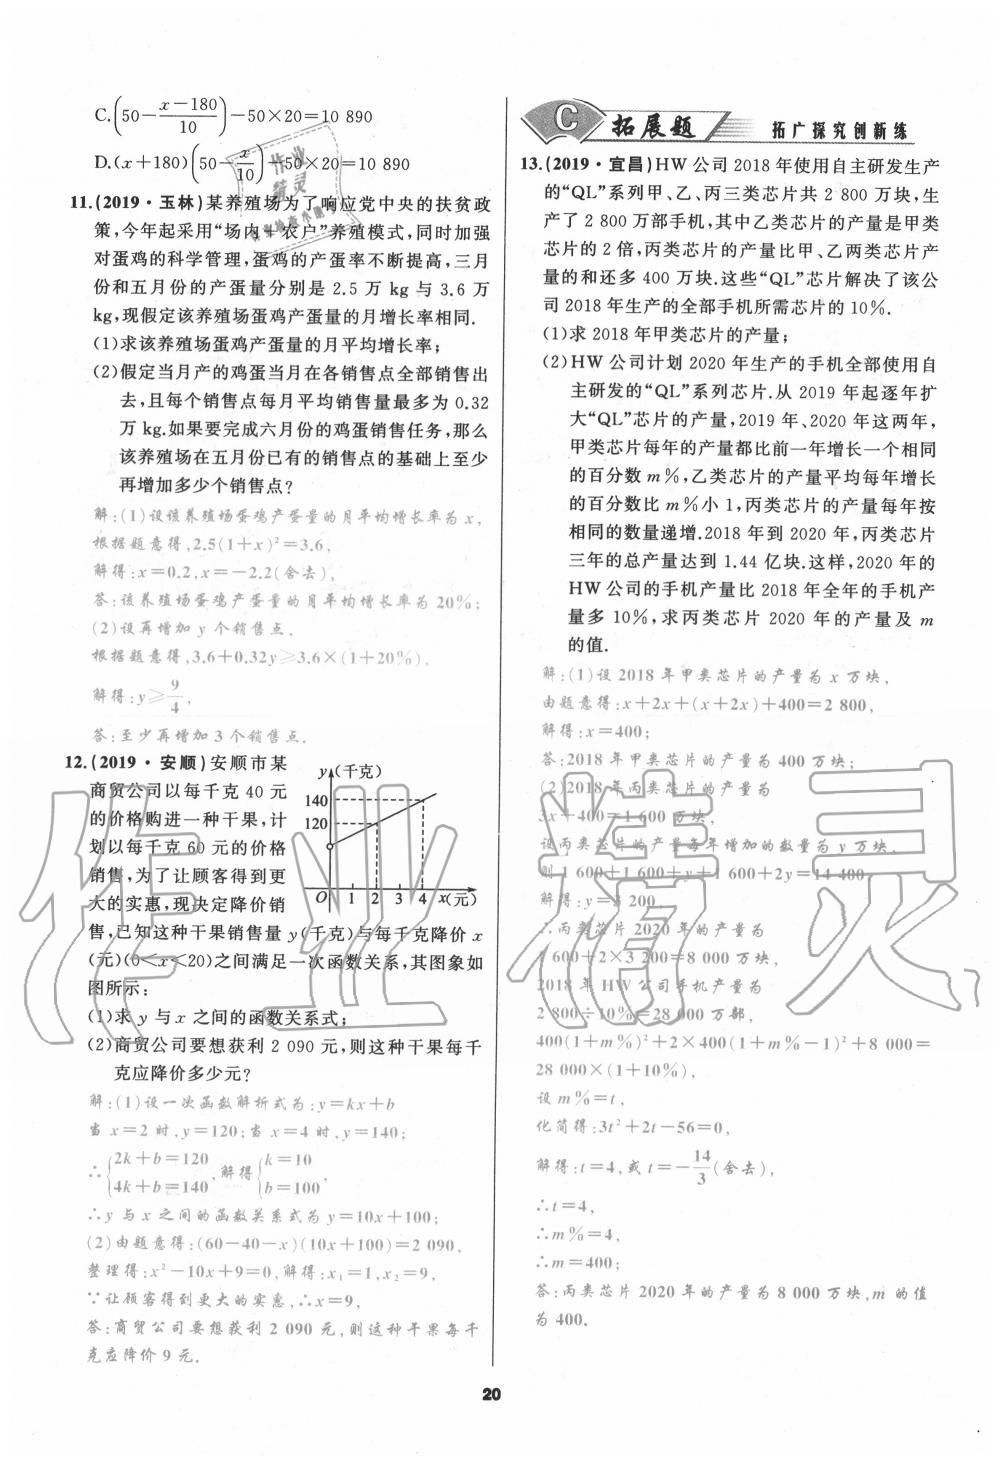 C.(50－(x－180)/10)－50×20＝10 890
D.(x＋180)(50－x/10)－50×20＝10 890
11.(2019·玉林)某养殖场为了响应党中央的扶贫政
策,今年起采用“场内＋农户”养殖模式,同时加强
对蛋鸡的科学管理,蛋鸡的产蛋率不断提高,三月
份和五月份的产蛋量分别是 2.5 万 kg 与 3.6 万
kg,现假定该养殖场蛋鸡产蛋量的月增长率相同.
(1)求该养殖场蛋鸡产蛋量的月平均增长率;
(2)假定当月产的鸡蛋当月在各销售点全部销售出
去,且每个销售点每月平均销售量最多为 0.32
万 kg.如果要完成六月份的鸡蛋销售任务,那么
该养殖场在五月份已有的销售点的基础上至少
再增加多少个销售点?
解:(1)设该养殖场蛋鸡产蛋量的月平均增长率为 x,
根据题意得,2.5(1＋x)²＝3.6,
解得:x＝0.2,x＝－2.2(舍去),
答:该养殖场蛋鸡产蛋量的月平均增长率为 20%;
(2)设再增加 y 个销售点.
根据题意得,3.6＋0.32y≥3.6×(1＋20%),
解得:y≥9/4,
答:至少再增加 3 个销售点.
12.(2019·安顺)安顺市某
商贸公司以每千克 40 元
的价格购进一种干果,计
划以每千克 60 元的价格
销售,为了让顾客得到更
大的实惠,现决定降价销
售,已知这种干果销售量 y(千克)与每千克降价 x
(元)(0＜x＜20)之间满足一次函数关系,其图象如
图所示:
y(千克)
140
120
O 1 2 3 4 x(元)
(1)求 y 与 x 之间的函数关系式;
(2)商贸公司要想获利 2 090 元,则这种干果每千
克应降价多少元?
解:(1)设一次函数解析式为:y＝kx＋b
当 x＝2 时,y＝120;当 x＝4 时,y＝140;
∴{2k＋b＝120 4k＋b＝140,解得{k＝10 b＝100,
∴y 与 x 之间的函数关系式为 y＝10x＋100;
(2)由题意得:(60－40－x)(10x＋100)＝2 090,
整理得:x²－10x＋9＝0,解得:x₁＝1,x₂＝9,
∵让顾客得到更大的实惠,∴x＝9,
答:商贸公司要想获利 2 090 元,则这种干果每千
克应降价 9 元.
C 拓展题 拓广探究创新练
13.(2019·宜昌)HW 公司 2018 年使用自主研发生产
的“QL”系列甲、乙、丙三类芯片共 2 800 万块,生
产了 2 800 万部手机,其中乙类芯片的产量是甲类
芯片的 2 倍,丙类芯片的产量比甲、乙两类芯片产
量的和还多 400 万块.这些“QL”芯片解决了该公
司 2018 年生产的全部手机所需芯片的 10%.
(1)求 2018 年甲类芯片的产量;
(2)HW 公司计划 2020 年生产的手机全部使用自
主研发的“QL”系列芯片.从 2019 年起逐年扩
大“QL”芯片的产量,2019 年、2020 年这两年,
甲类芯片每年的产量都比前一年增长一个相同
的百分数 m%,乙类芯片的产量平均每年增长
的百分数比 m%小 1,丙类芯片的产量每年按
相同的数量递增.2018 年到 2020 年,丙类芯片
三年的总产量达到 1.44 亿块.这样,2020 年的
HW 公司的手机产量比 2018 年全年的手机产
量多 10%,求丙类芯片 2020 年的产量及 m
的值.
解:(1)设 2018 年甲类芯片的产量为 x 万块,
由题意得:x＋2x＋(x＋2x)＋400＝2 800,
解得:x＝400;
答:2018 年甲类芯片的产量为 400 万块;
(2)2018 年丙类芯片的产量为
3x＋400＝1 600 万块,
设丙类芯片的产量每年增加的数量为 y 万块,
则 1 600＋1 600＋y＋1 600＋2y＝14 400,
解得:y＝3 200,
∴丙类芯片 2020 年的产量为
1 600＋2×3 200＝8 000 万块,
2018 年 HW 公司手机产量为
2 800÷10%＝28 000 万部,
400(1＋m%)²＋2×400(1＋m%－1)²＋8 000＝
28 000×(1＋10%),
设 m%＝t,
化简得:3t²＋2t－56＝0,
解得:t＝4,或 t＝－14/3(舍去),
∴t＝4,
∴m%＝4,
∴m＝400;
答:丙类芯片 2020 年的产量为 8 000 万块,m 的值
为 400.
20
作业精灵